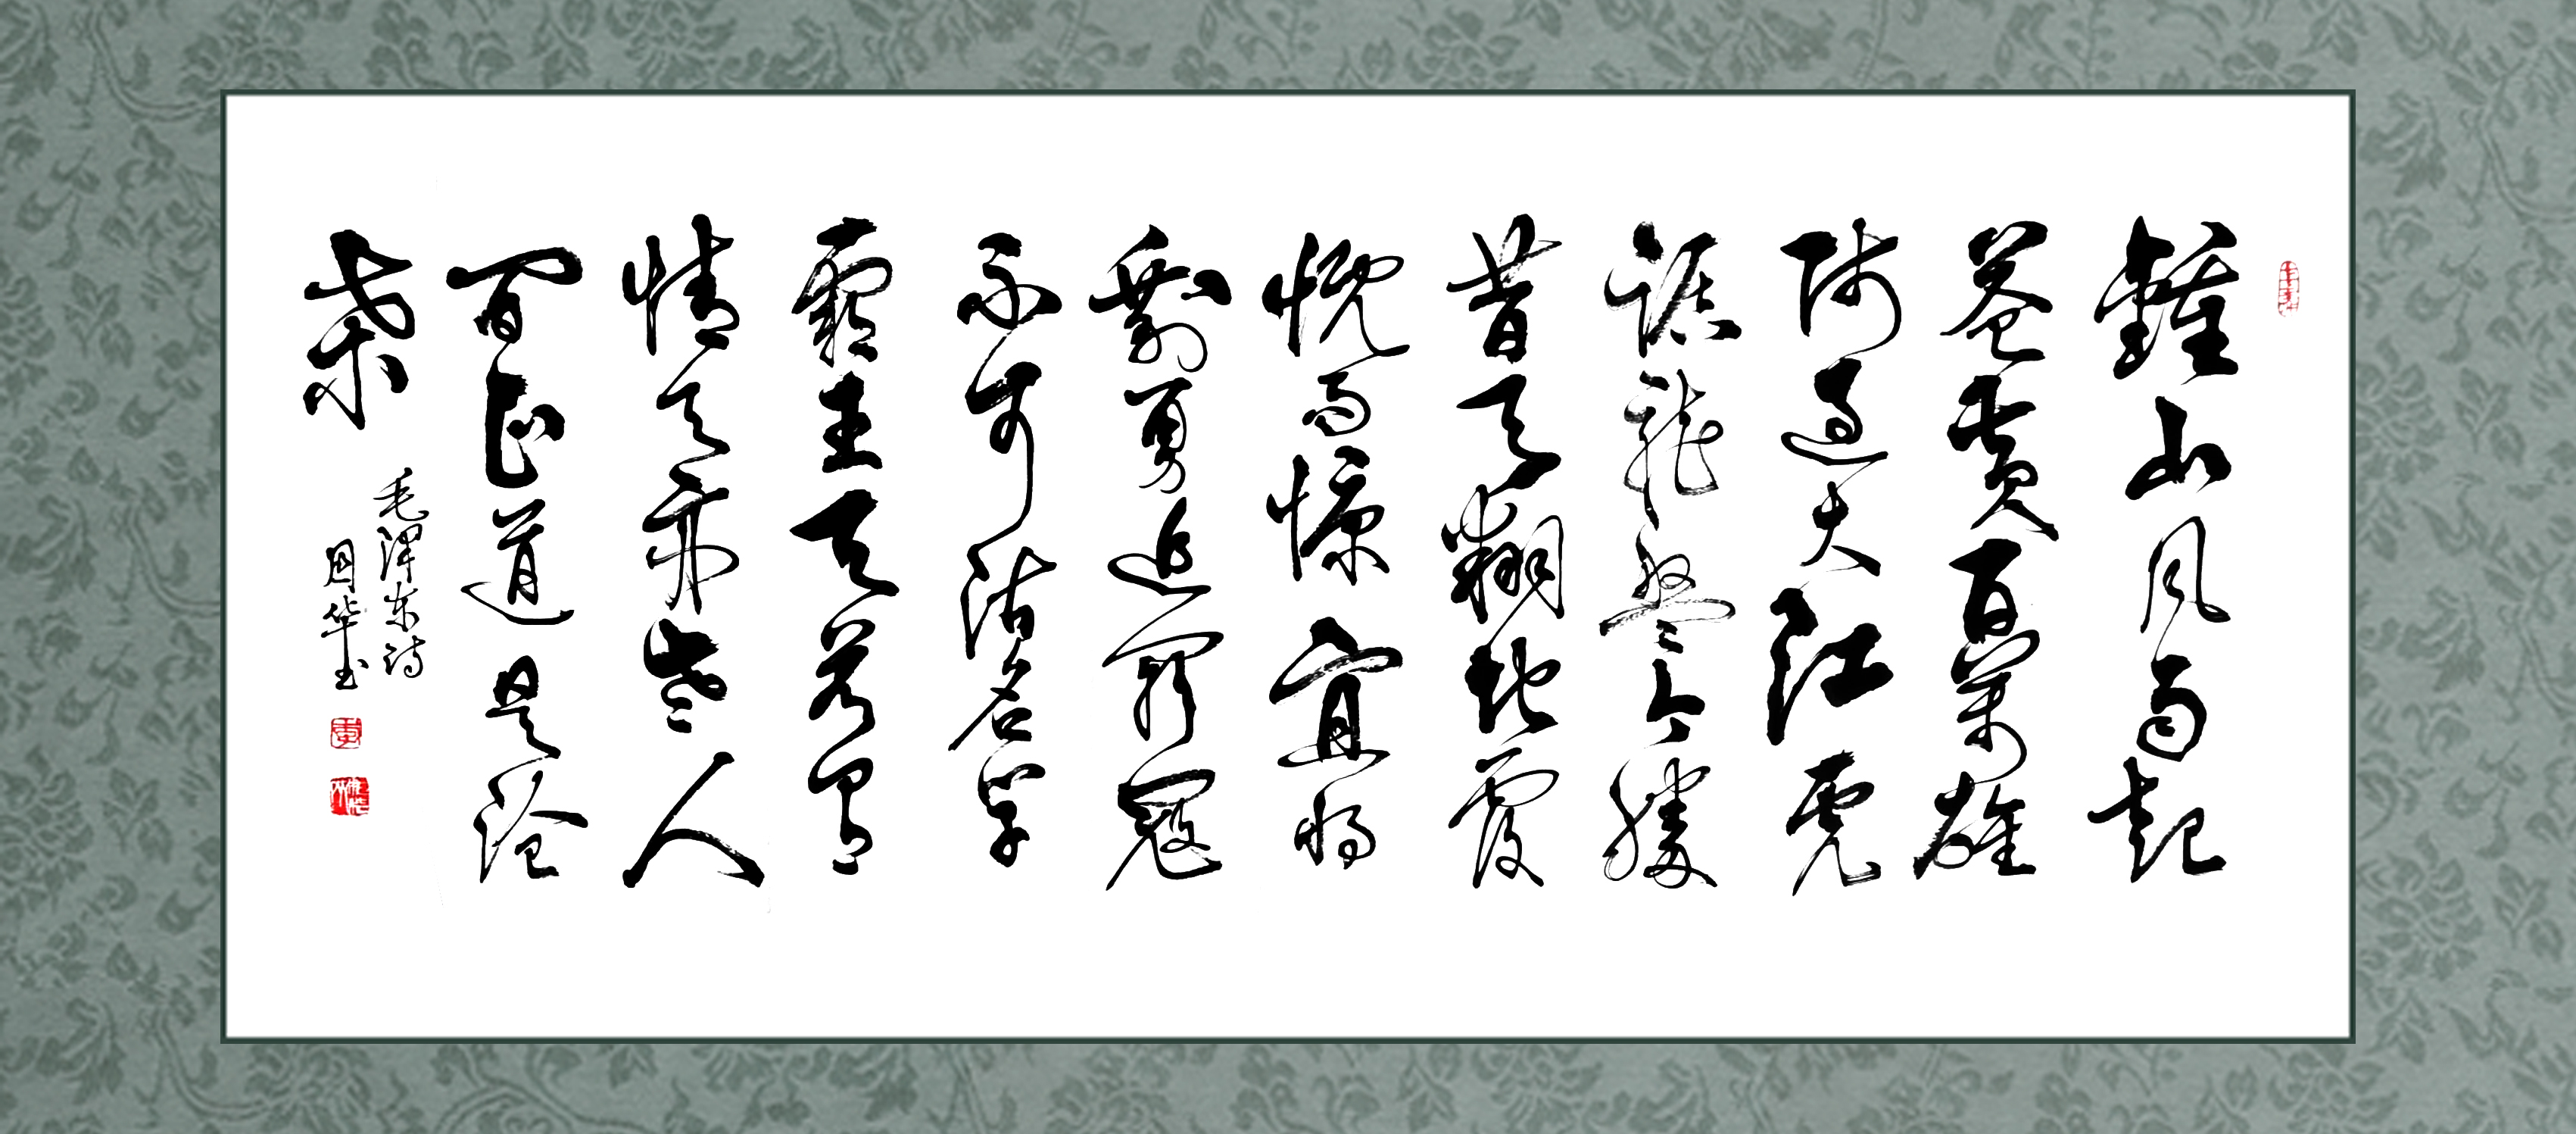 鍾山风雨起
苍黄百萬雄
师过大江虎
踞龍盘今勝
昔天翻地覆
慨而慷宜将
剩勇追窮寇
不可沽名学
霸王天若有
情天亦老人
间正道是沧
桑
毛泽东诗
国华书